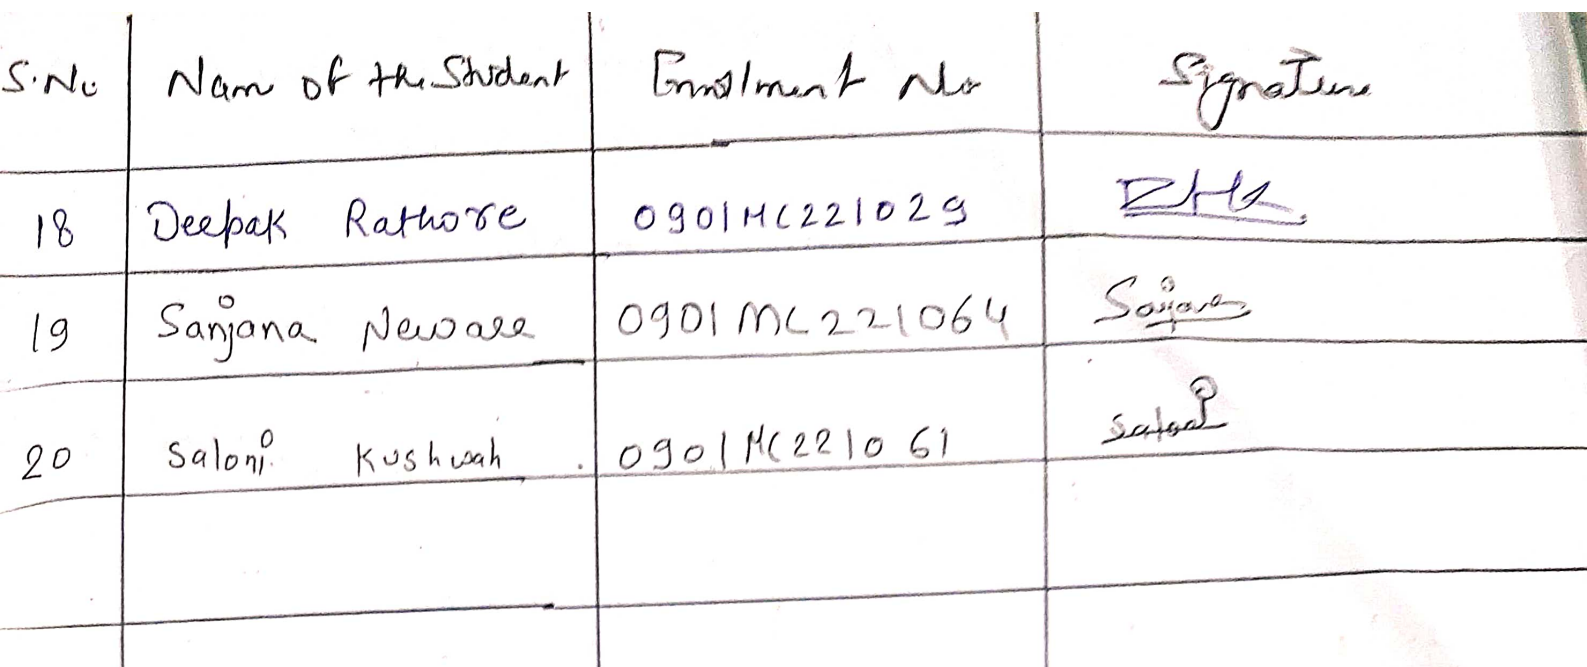 S.No Name of the Student Enrollment No Signature
18 Deepak Rathore 0901MC221029
19 Sanjana Neware 0901MC221064 Sanjana
20 Saloni Kushwah 0901MC221061 Saloni